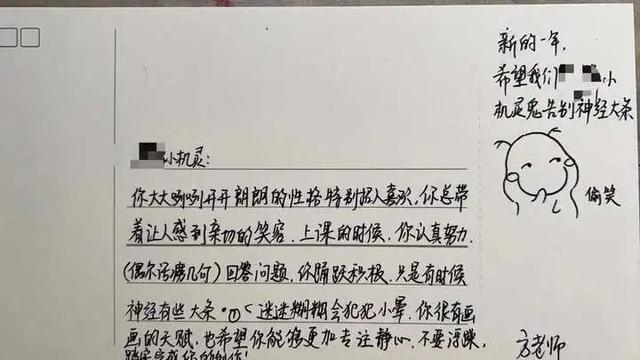 新的一年,
希望我们小
机灵鬼告别神经大条
偷笑
小机灵:
你大大咧咧开开朗朗的性格特别招人喜欢,你总带
着让人感到亲切的笑容.上课的时候,你认真努力
(偶尔话痨几句)回答问题,你踊跃积极.只是有时候
神经有些大条.迷迷糊糊会犯犯小晕.你很有画
画的天赋,也希望你能够更加专注静心.不要浮躁,
踏实完成你的创作!
方老师